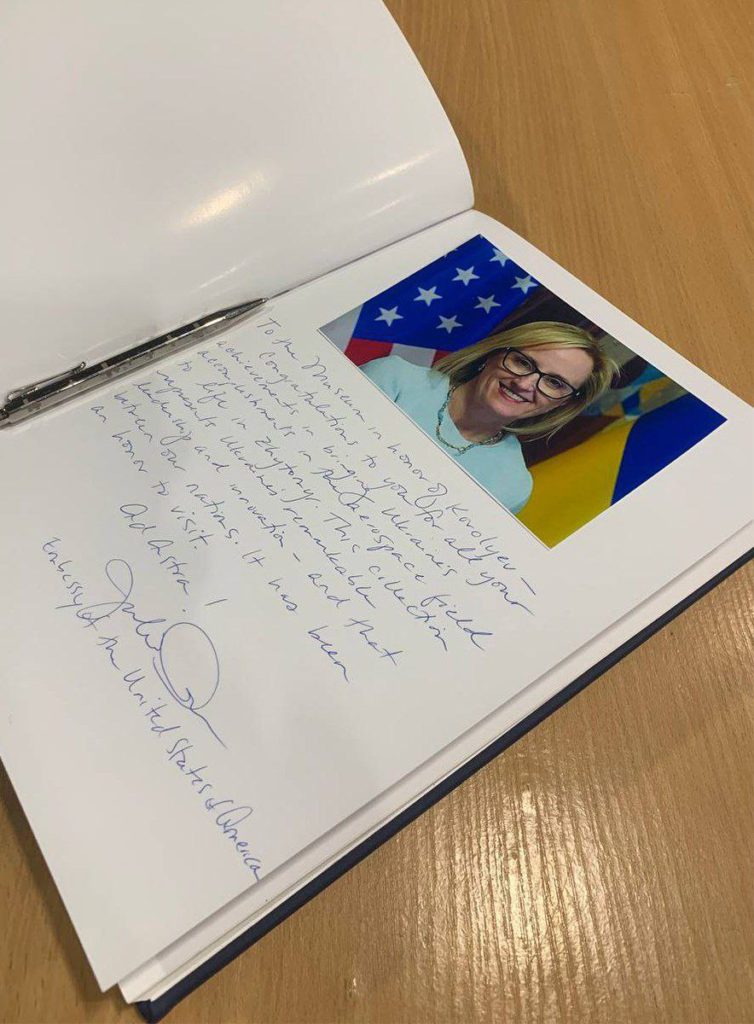 To the Museum in honor of Korolyev –
Congratulations to you for all your
achievements in bringing Ukraine's
accomplishments in the aerospace field
to life in Zhytomyr. This collection
represents Ukraine's remarkable
leadership and innovation – and that
between our nations. It has been
an honor to visit.
Ad Astra!
Embassy of the United States of America